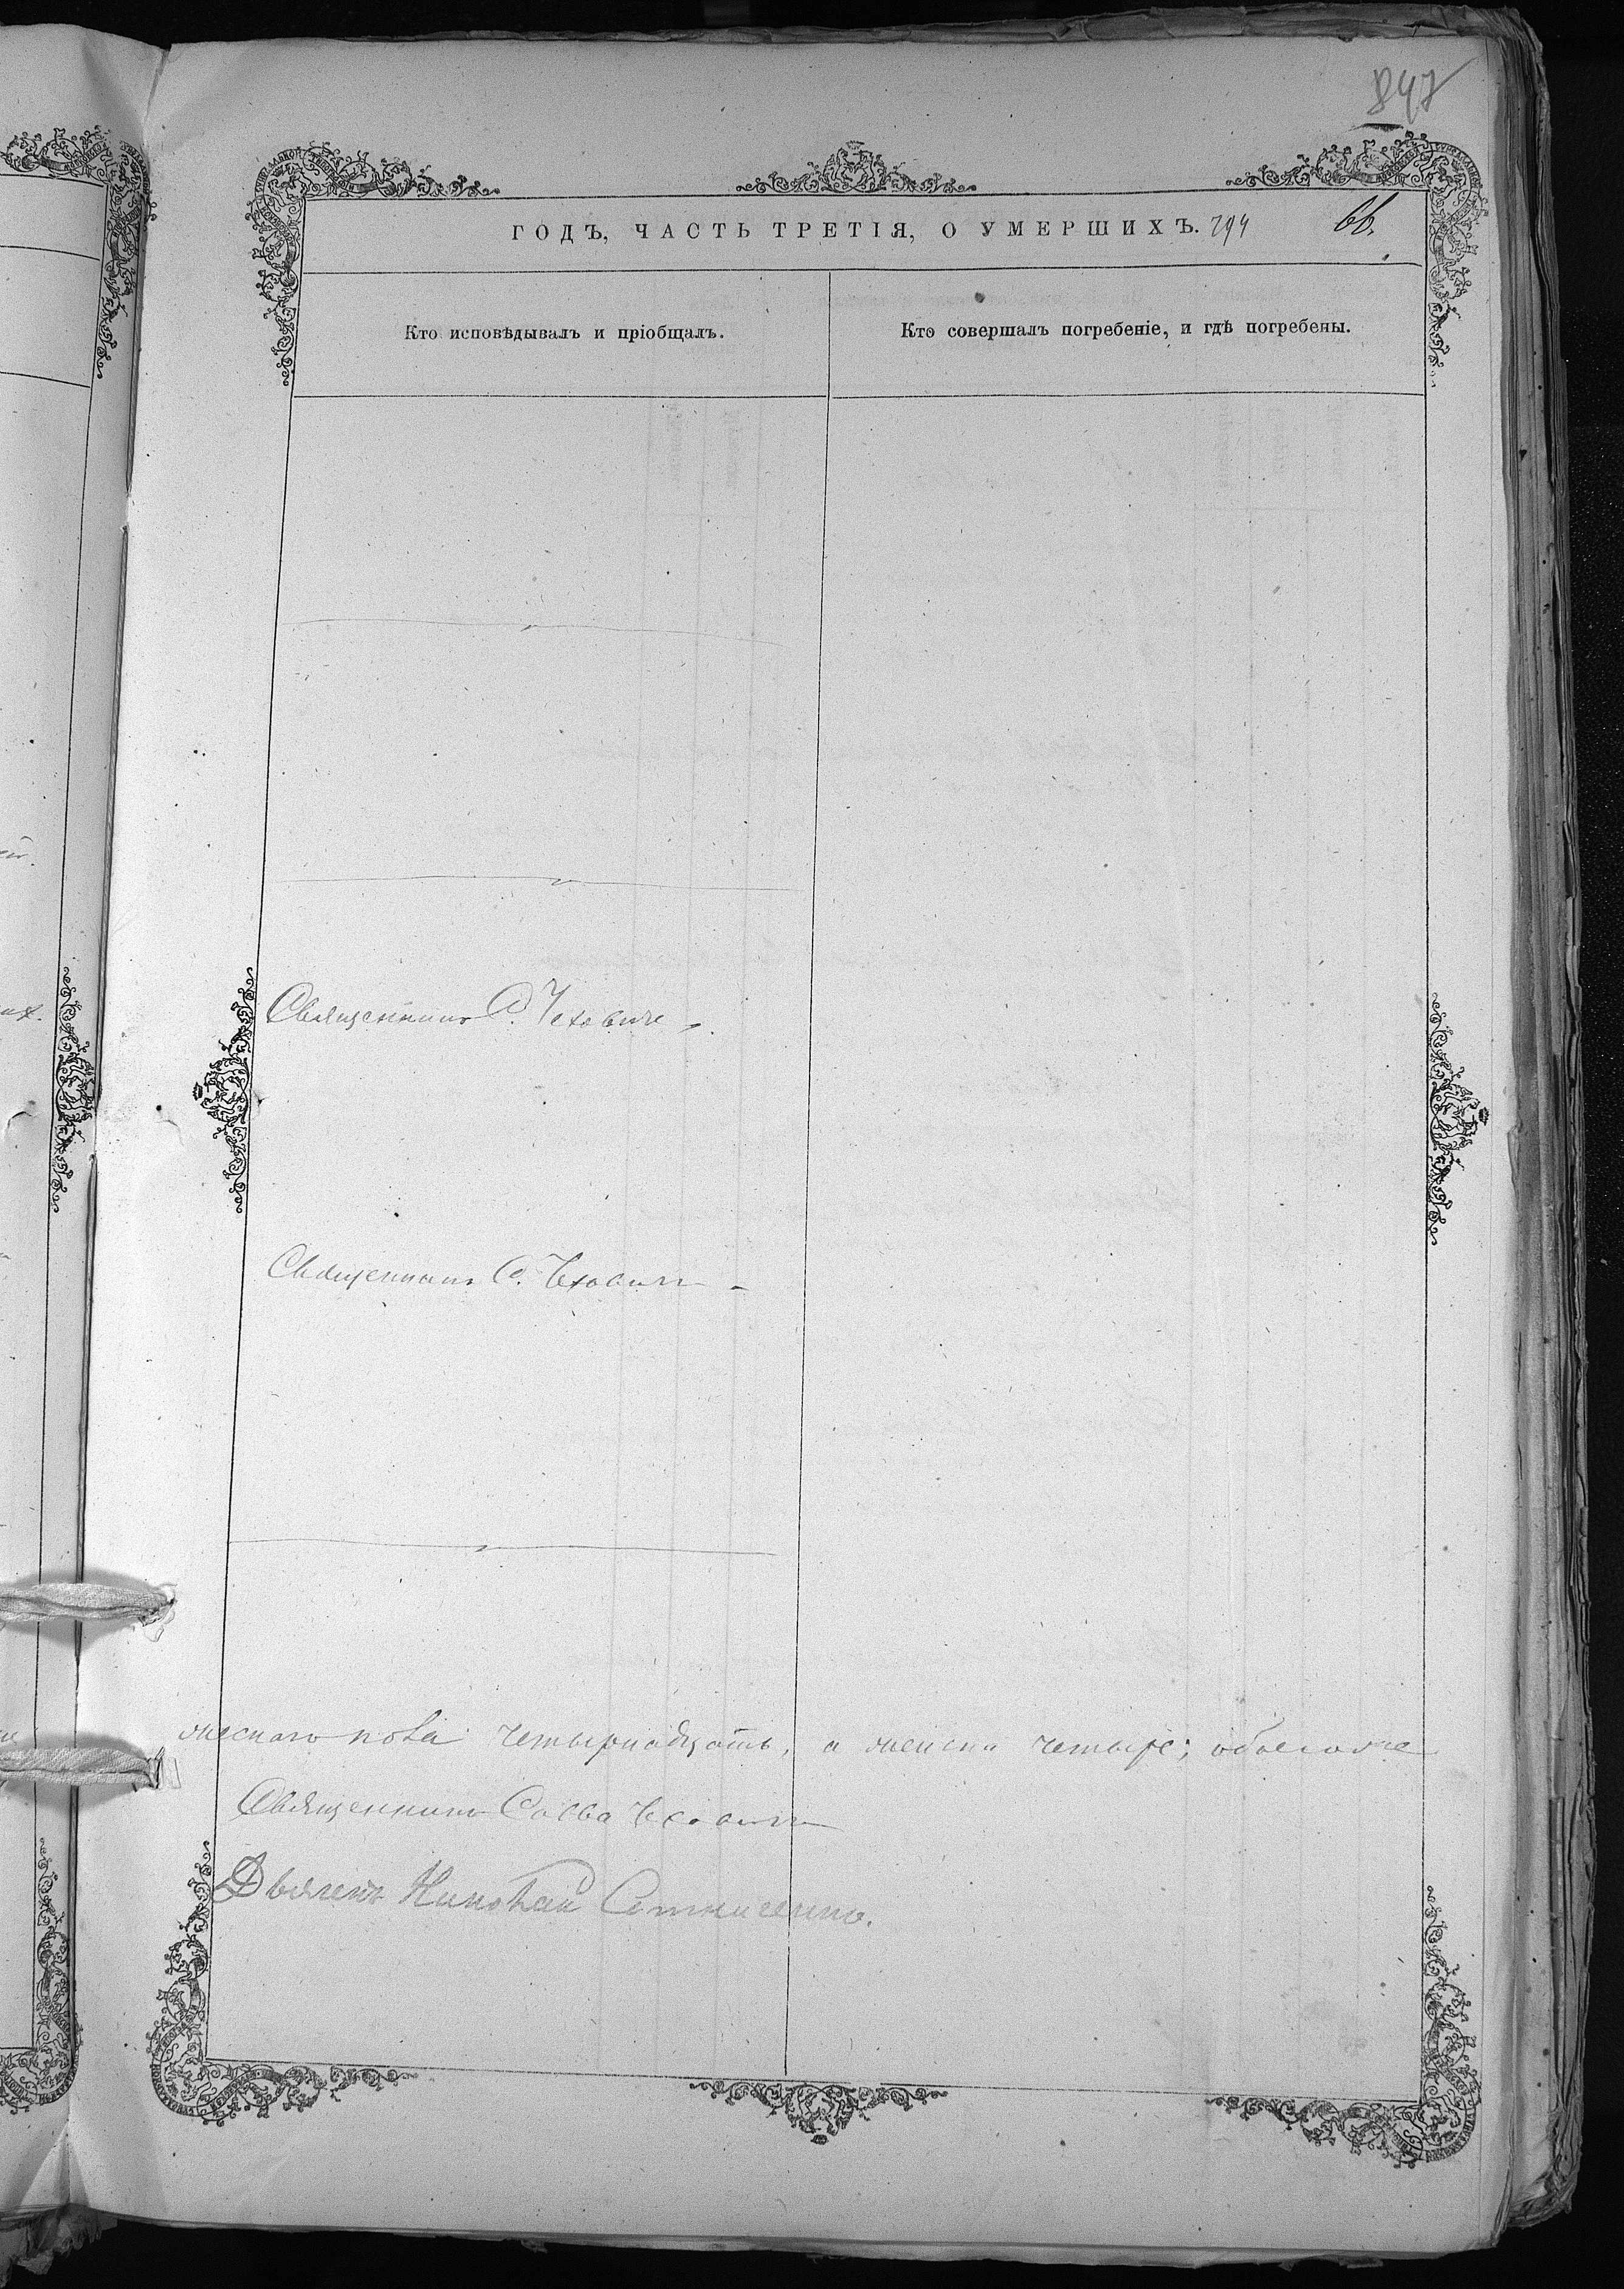 847
ГОДЪ, ЧАСТЬ ТРЕТІЯ, О УМЕРШИХЪ. 294 66.
Кто исповѣдывалъ и пріобщалъ.
Кто совершалъ погребеніе, и гдѣ погребены.
Священникъ С. Чеховичъ
Священникъ С. Чеховичъ
пола четырнадцать, а четыре; обоего же
Священникъ Савва Чеховичъ
Дьячекъ Николай